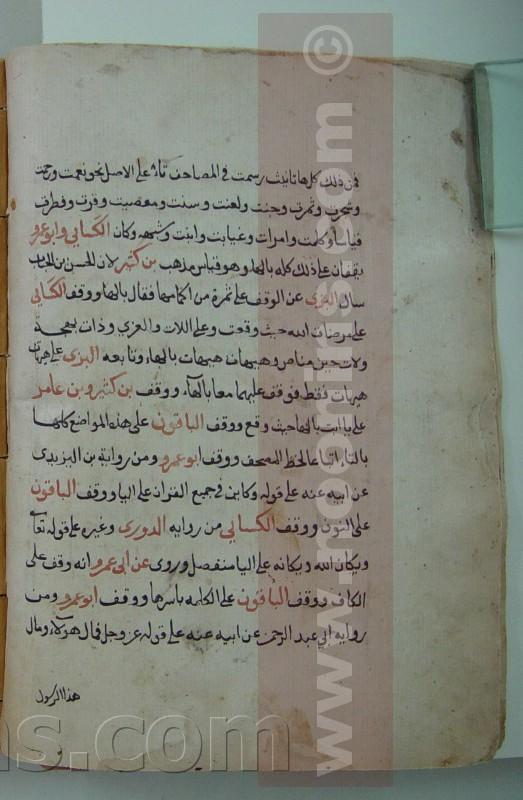 فمن ذلك كل هاتانيث رسمت في المصاحف تاء على الاصل نحو نعمت ورحمت
وشجرت وثمرت وجنت ولعنت وسنت ومعصيت وقرت وفطرت
وامرات وغيابت وابنت وشبهه وكان الكسايي وابو عمرو
يقفان على ذلك كله بالها وهو قياس مذهب بن كثير لان الحسن بن الحباب
سال البزي عن الوقف على ثمرة من اكمامها فقال بالها ووقف الكسايي
على مرضات الله حيث وقعت وعلى اللات والعزي وذات بهجة
ولات حين مناص وهيهات هيهات بالها وتابعه البزى على هيهات
هيهات فقط فوقف عليهما معا بالها، ووقف بن كثير وبن عامر
على يا ابت بالها حيث وقع ووقف الباقون على هذه المواضع كلها
بالتا اتباعا لخط المصحف ووقف ابو عمرو ومن رواية بن اليزيدى
عن ابيه عنه على قوله وكاين في جميع القران على اليا ووقف الباقون
على النون ووقف الكسايي من روايه الدورى وغيره على قوله تعالى
ويكان الله ويكانه على اليا منفصل وروى عن ابى عمرو انه وقف على
الكاف ووقف الباقون على الكلمه باسرها ووقف ابو عمرو ومن
روايه ابي عبد الرحمن عن ابيه عنه على قوله عز وجل فمال هولاء ومال
هذا الرسول
www.noorins.com ©
ns.com